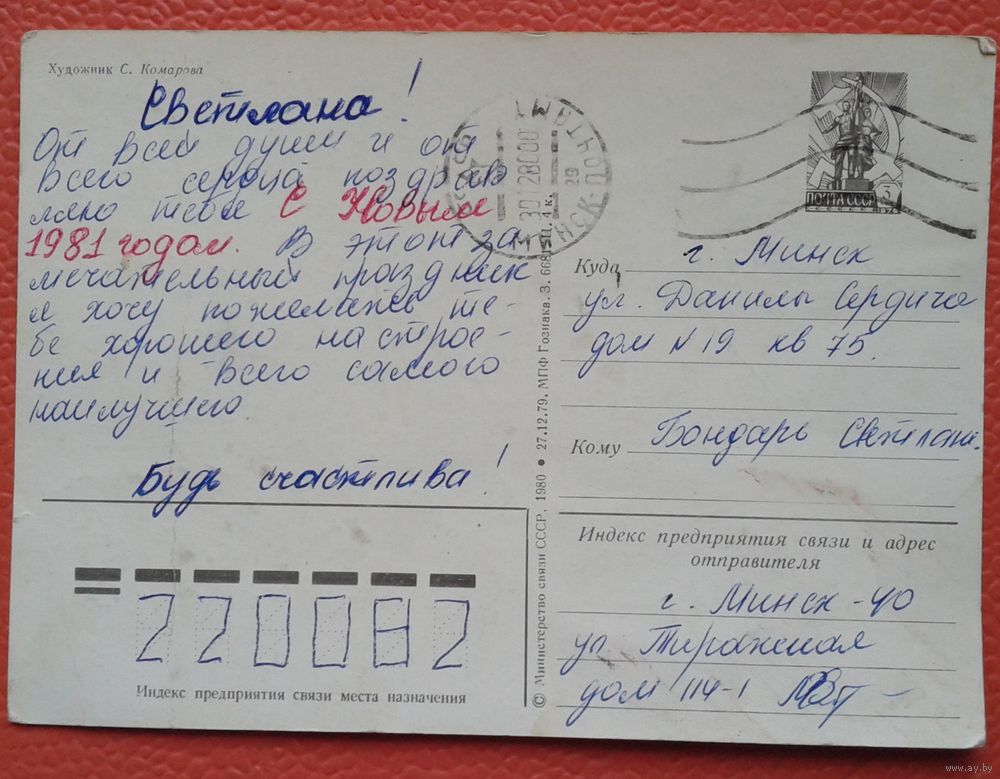 Художник С. Комарова
Светлана!
От всей души и от
всего сердца поздрав
ляю тебя с Новым
1981 годом. В этот за
мечательный праздник
я хочу пожелать те-
бе хорошего настрое-
ния и всего самого
наилучшего.
Будь счастлива!
220082
Индекс предприятия связи места назначения
© Министерство связи СССР, 1980 • 27.12.79. МПФ Гознака. З. 4 к.
ПОЧТА СССР
3
МИНСК ПОЧТАМТ
29
Куда г. Минск
ул. Данилы Сердича
дом N 19 кв 75.
Кому Бондарь Светлане.
Индекс предприятия связи и адрес
отправителя
г. Минск-40
ул. Тиражная
дом 114-1
www.ay.by